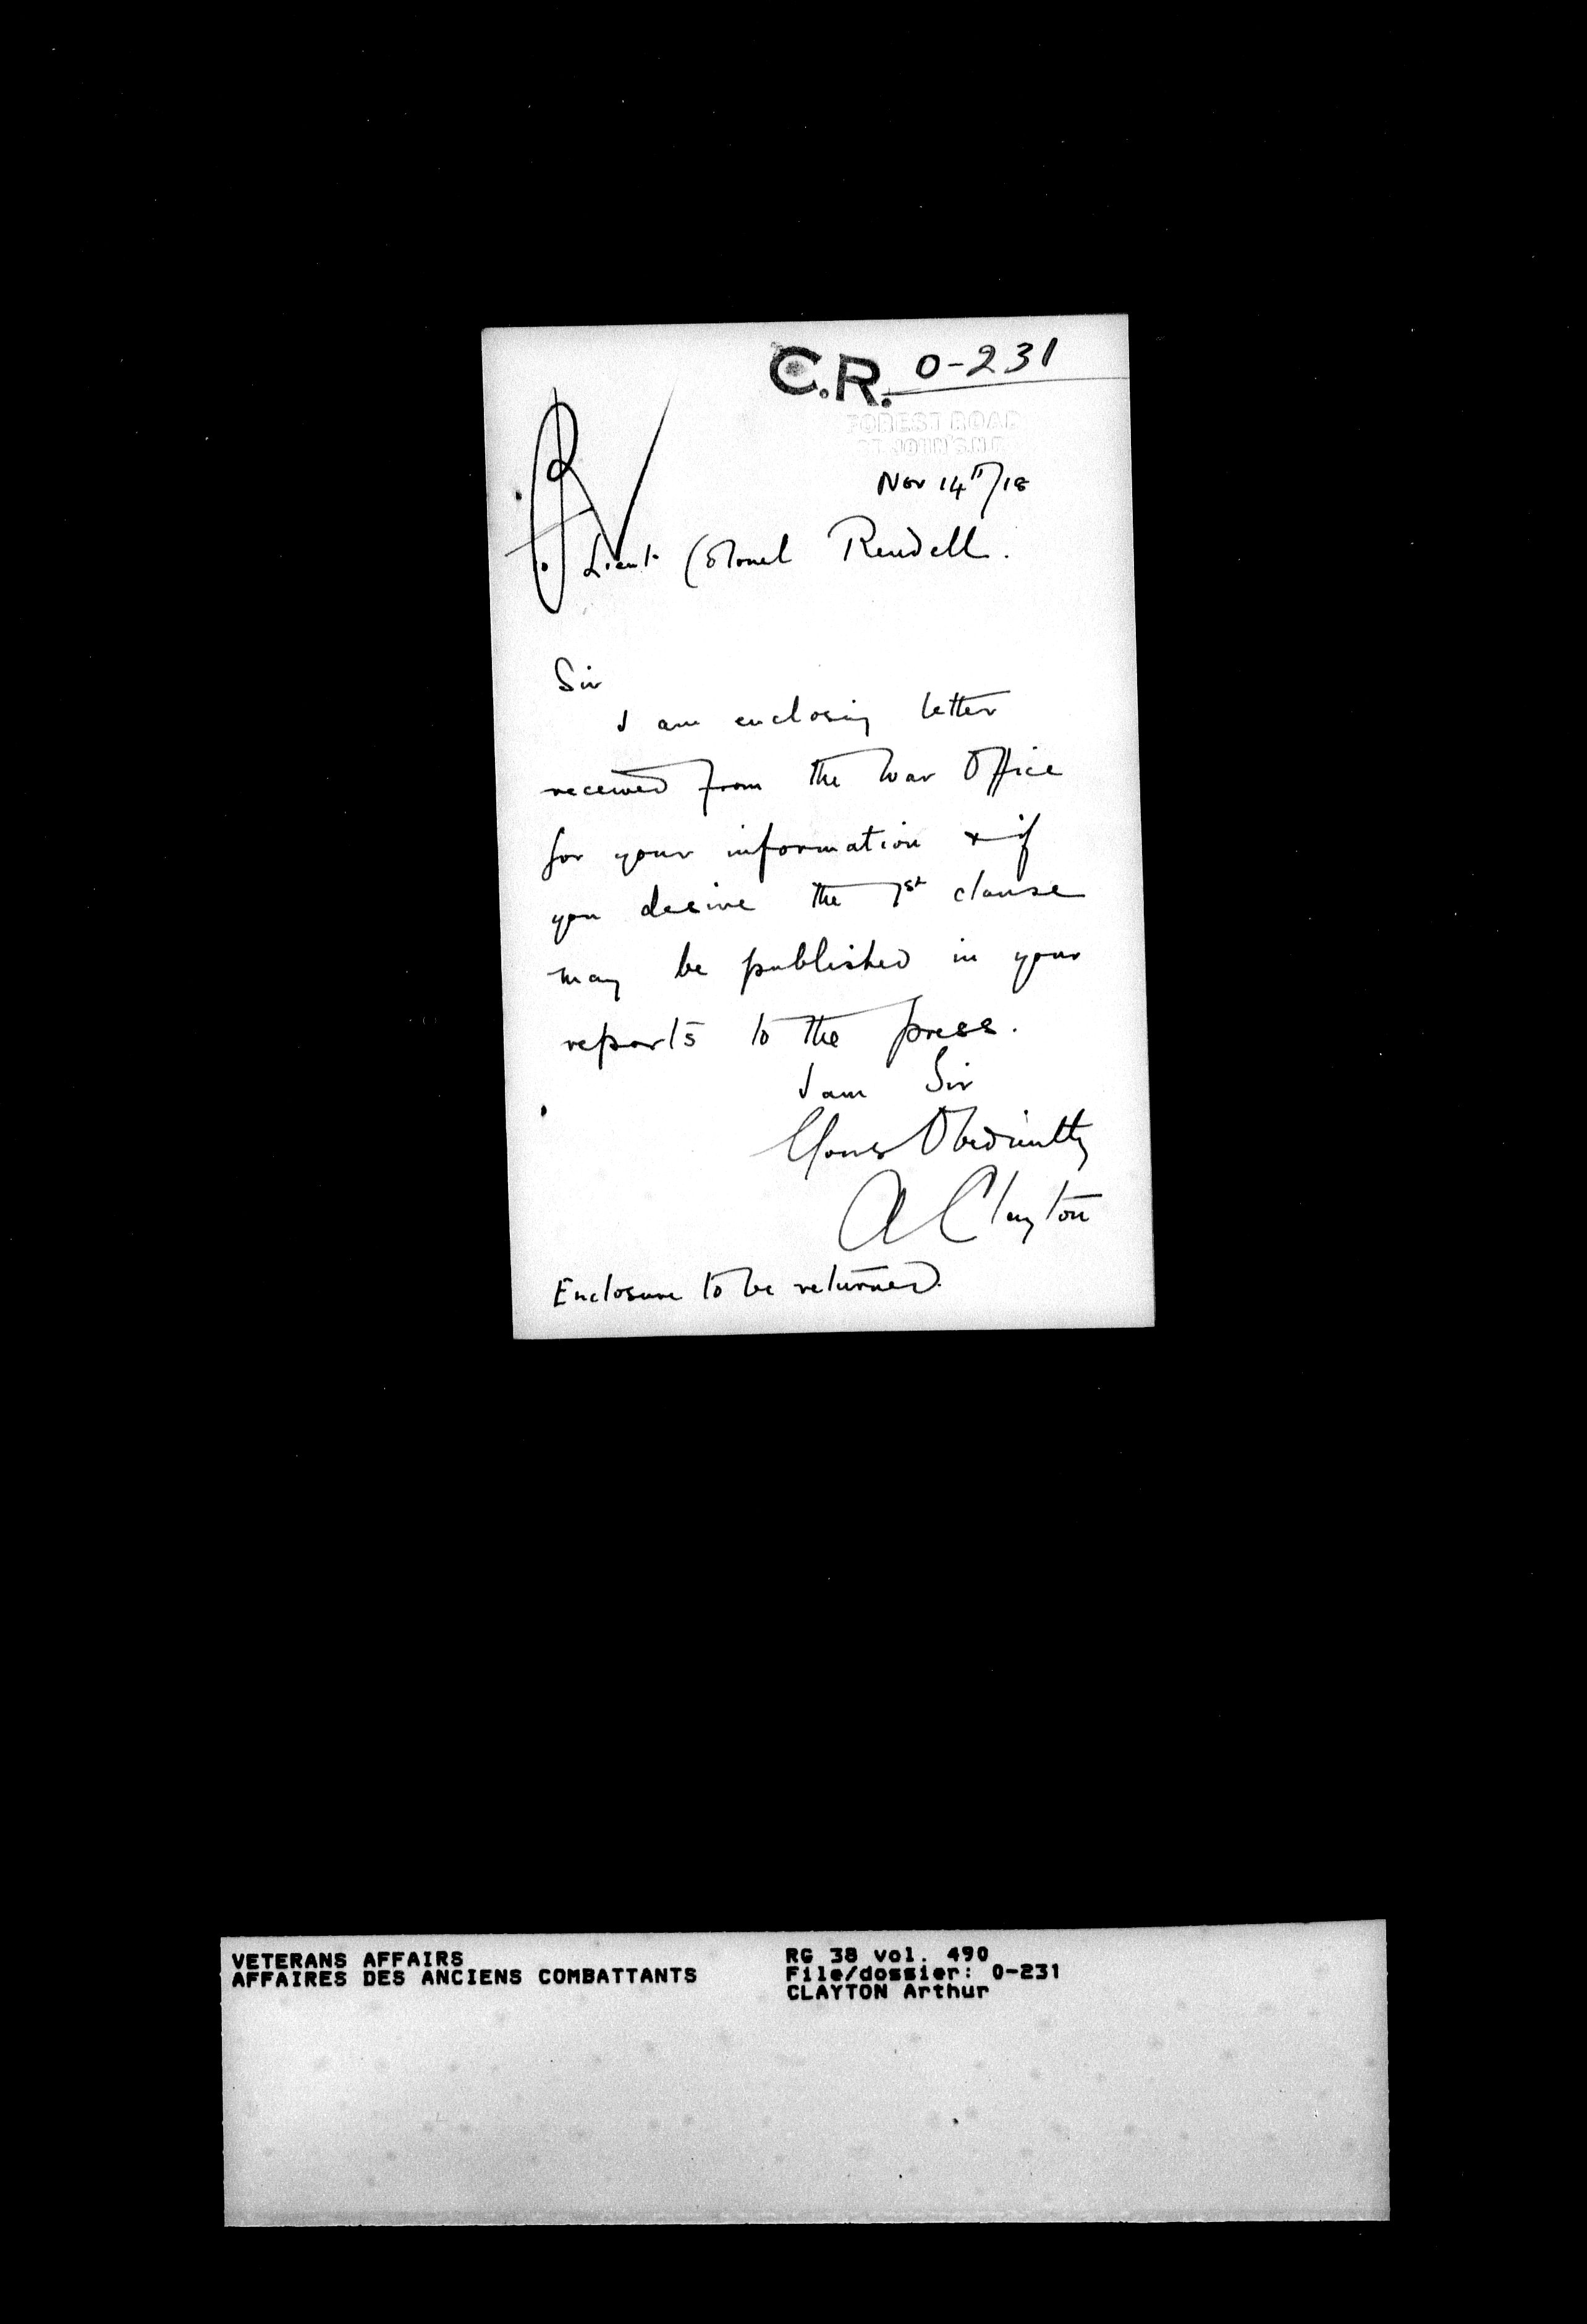 C.R. 0-231
FOREST ROAD
ST. JOHN'S. N.F.
Nov 14th/18
Lieut Colonel Rendell.
Sir
I am enclosing letter
received from the War Office
for your information & if
you desire the 1st clause
may be published in your
reports to the press.
I am Sir
Yours Obediently
A Clayton
Enclosure to be returned.
VETERANS AFFAIRS
AFFAIRES DES ANCIENS COMBATTANTS
RG 38 vol. 490
File/dossier: 0-231
CLAYTON Arthur